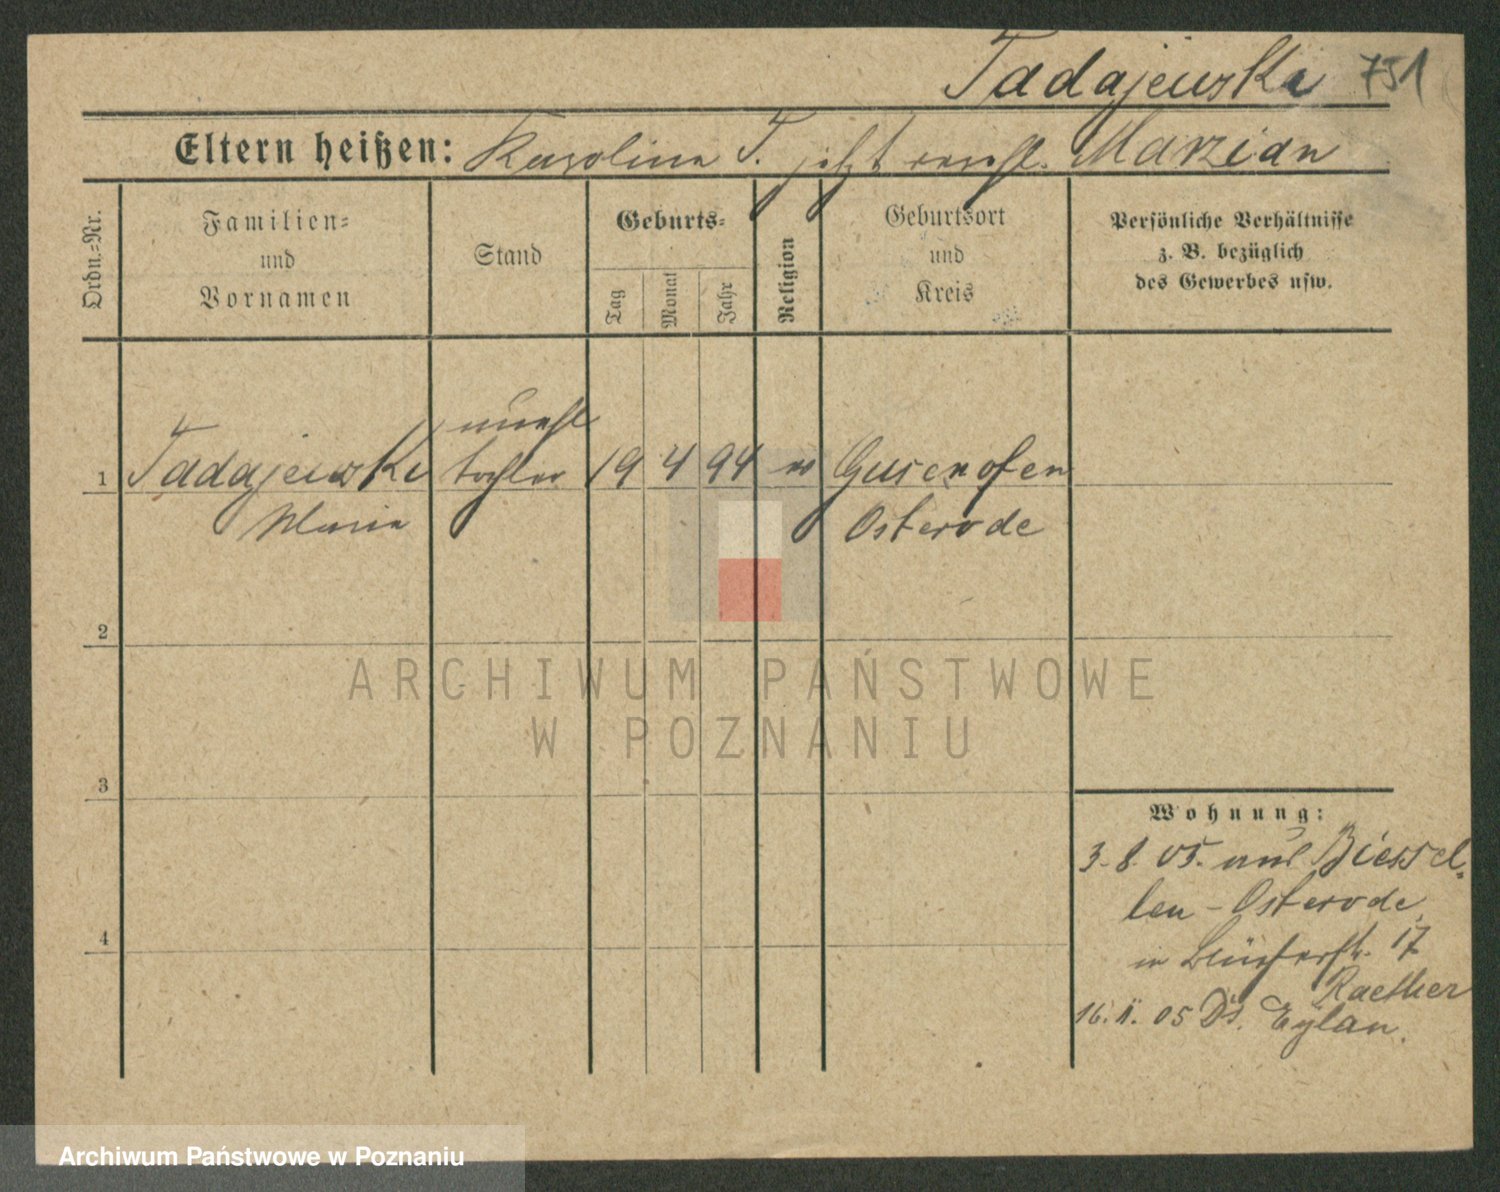 Tadajewski 751
Eltern heißen: Karoline T. jetzt verehl. Marzian
Ordn.-Nr.
Familien-
und
Vornamen
Stand
Geburts-
Tag
Monat
Jahr
Religion
Geburtsort
und
Kreis
Persönliche Verhältnisse
z. B. bezüglich
des Gewerbes usw.
unehl
1 Tadajewski tochter 19 4 94 Gusenofen
Maria Osterode
2
ARCHIWUM PAŃSTWOWE
W POZNANIU
3
Wohnung:
3. 8. 05. aus Biessel-
len - Osterode
4
in Blücherstr. 17
Raether
16. X. 05 Dt. Eylau.
Archiwum Państwowe w Poznaniu